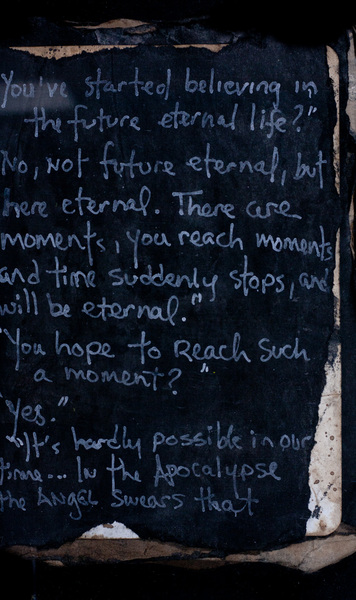 You've started believing in
the future eternal life?"
No, not future eternal, but
here eternal. There are
moments, you reach moments
and time suddenly stops, and
will be eternal."
"You hope to reach such
a moment? "
"Yes."
"It's hardly possible in our
time... In the Apocalypse
the Angel swears that